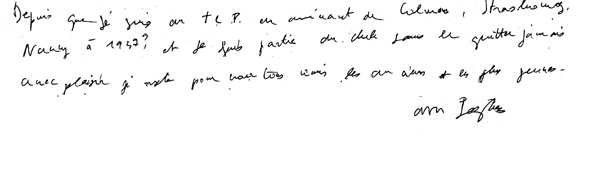 Depuis que je suis au T.C.P. en arrivant de Colmar, Strasbourg,
Nancy à 1937? et je fais partie du club sans le quitter jamais
avec plaisir je reste pour vous tous amis les anciens et les plus jeunes.